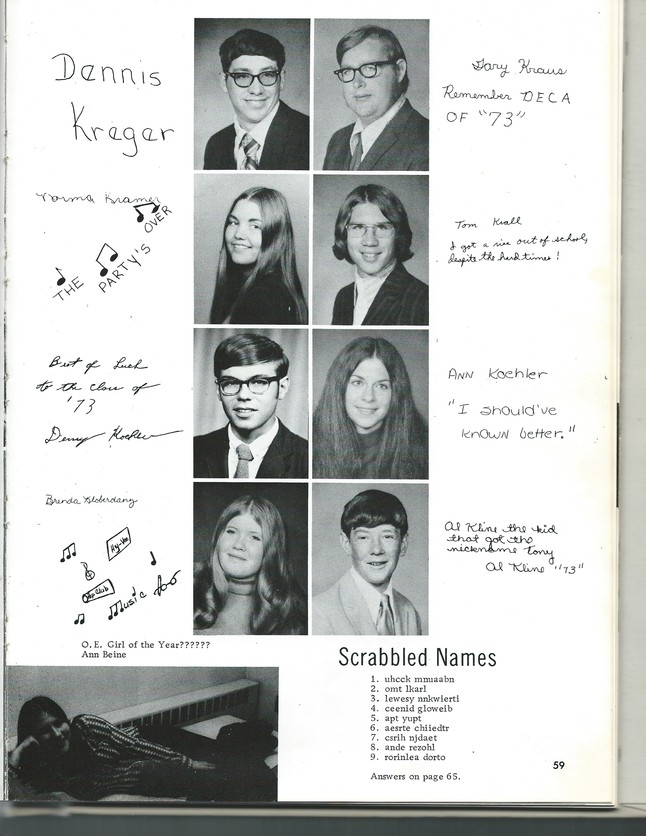 Dennis
Kreger
Gary Kraus
Remember DECA
OF "73"
Norma Kramer
THE PARTY'S OVER
Tom Krall
I got a rise out of school,
despite the hard times!
Best of Luck
to the class of
'73
Denny Koehler
Ann Koehler
"I should've
known better."
Brenda Kloberdanz
Hy-Lo
Pep Club
Music
Al Kline the kid
that got the
nickname Tony
Al Kline "73"
O.E. Girl of the Year??????
Ann Beine
Scrabbled Names
1. uhcck mmuaabn
2. omt lkarl
3. lewesy nnkwierti
4. ceenid gloweib
5. apt yupt
6. aesrte chiiedtr
7. csrih njdaet
8. ande rezohl
9. rorinlea dorto
Answers on page 65.
59